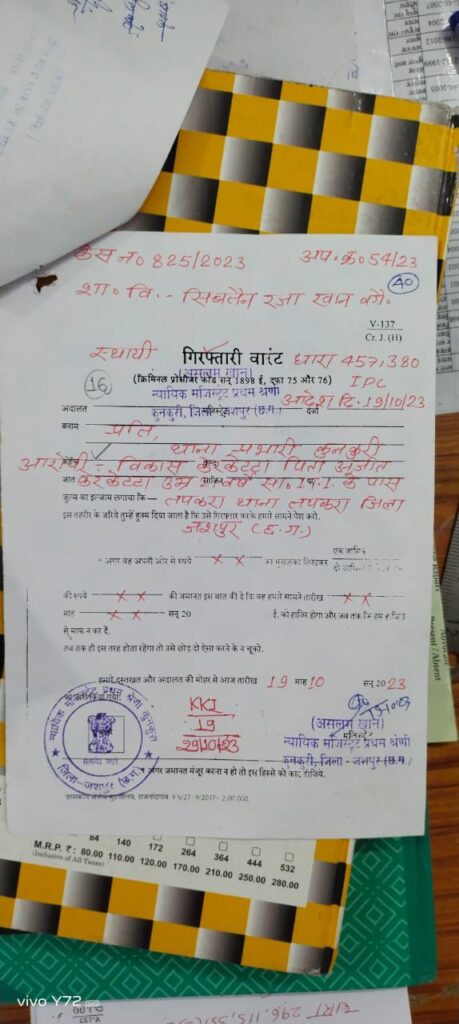 केस न० 825/2023 अप.क्र० 54/23
40
शा० वि. - सिबतैन रजा खान वगै.
V-137
Cr. J. (H)
स्थायी गिरफ्तारी वारंट धारा 457, 380
(क्रिमिनल प्रोसीजर कोड सन् 1898 ई, दफा 75 और 76) IPC
16
(असलम खान)
न्यायिक मजिस्ट्रेट प्रथम श्रेणी आदेश दि. 19/10/23
अदालत कुनकुरी, जिला जशपुर (छ.ग.) दर्जा
बनाम प्रति,
थाना प्रभारी कुनकुरी
आरोपी :- विकास केरकेट्टा पिता अज्ञात
जात उम्र वर्ष सा. के पास
जुल्म का इलजाम लगाया कि— तपकरा थाना तपकरा जिला
इस तहरीर के जरिये तुम्हें हुक्म दिया जाता है कि उसे गिरफ्तार करके हमारे सामने पेश करो.
जशपुर (छ.ग.)
* अगर वह अपनी ओर से रुपये x x का मुचलका लिखकर एक जामिन
दो जामिन
की रुपये x x की जमानत इस बात की दे कि वह हमारे सामने तारीख x x
माह x x सन् 20 ई. को हाजिर होगा और जब तक कि हम हाजिरी
से माफ न कर दें.
तब तक ही इस तरह होता रहेगा तो उसे छोड़ दो ऐसा करने के न चूको.
हमारे दस्तखत और अदालत की मोहर से आज तारीख 19 माह 10 सन् 2023
न्यायिक मजिस्ट्रेट प्रथम श्रेणी कुनकुरी
जिला-जशपुर (छ.ग.)
सत्यमेव जयते
KKI
19
29/10/23
(असलम खान)
मजिस्ट्रेट
न्यायिक मजिस्ट्रेट प्रथम श्रेणी
कुनकुरी, जिला - जशपुर (छ.ग.)
* अगर जमानत मंजूर करना न हो तो इस हिस्से को काट दीजिये.
84 140 172 264 364 444 532
M.R.P. ₹ : 80.00 110.00 120.00 170.00 210.00 250.00 280.00
(Inclusive of All Taxes)
Present / Absent
vivo Y72 5G